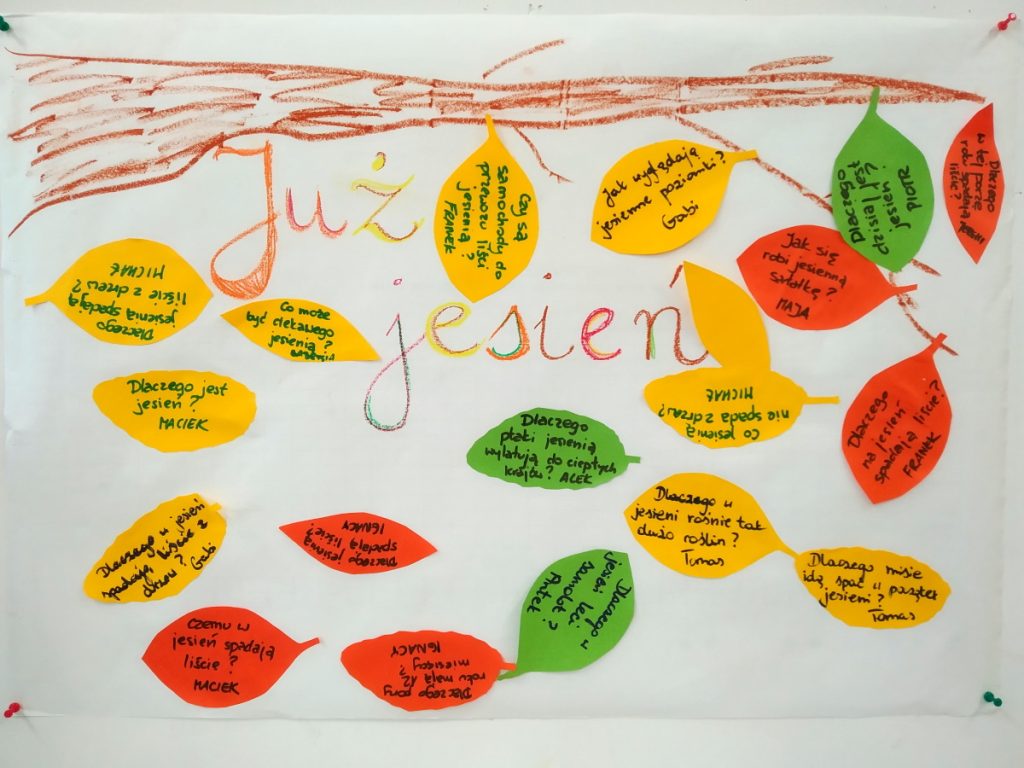 Już
jesień
Czy są
samochody do
przewozu liści
jesienią
?
FRANEK
Jak wyglądają
jesienne poziomki?
Gabi
Dlaczego
dzisiaj jest
jesień?
PIOTR
Dlaczego
w tej porze
robi spadają
liście?
Jak się
robi jesienną
sałatkę?
MAJA
Dlaczego
jesienią spadają
liście z drzew?
MICHAŁ
Co może
być ciekawego
jesienią?
Dlaczego jest
jesień?
MACIEK
Co jesienią
nie spada z drzew?
MICHAŁ
Dlaczego
na jesień
spadają liście?
FRANEK
Dlaczego
ptaki jesienią
wylatują do ciepłych
krajów? ALEK
Dlaczego w
jesieni rośnie tak
dużo roślin?
Tomas
Dlaczego misie
idą spać w
jesieni?
Tomas
Dlaczego w jesień
spadają liście z
drzew? Gabi
Dlaczego jesienią
spadają liście?
IGNACY
Dlaczego w
jesieni leci
samolot?
Antek
czemu w
jesień spadają
liście?
MACIEK
Dlaczego pory
roku mają 12
miesięcy?
IGNACY